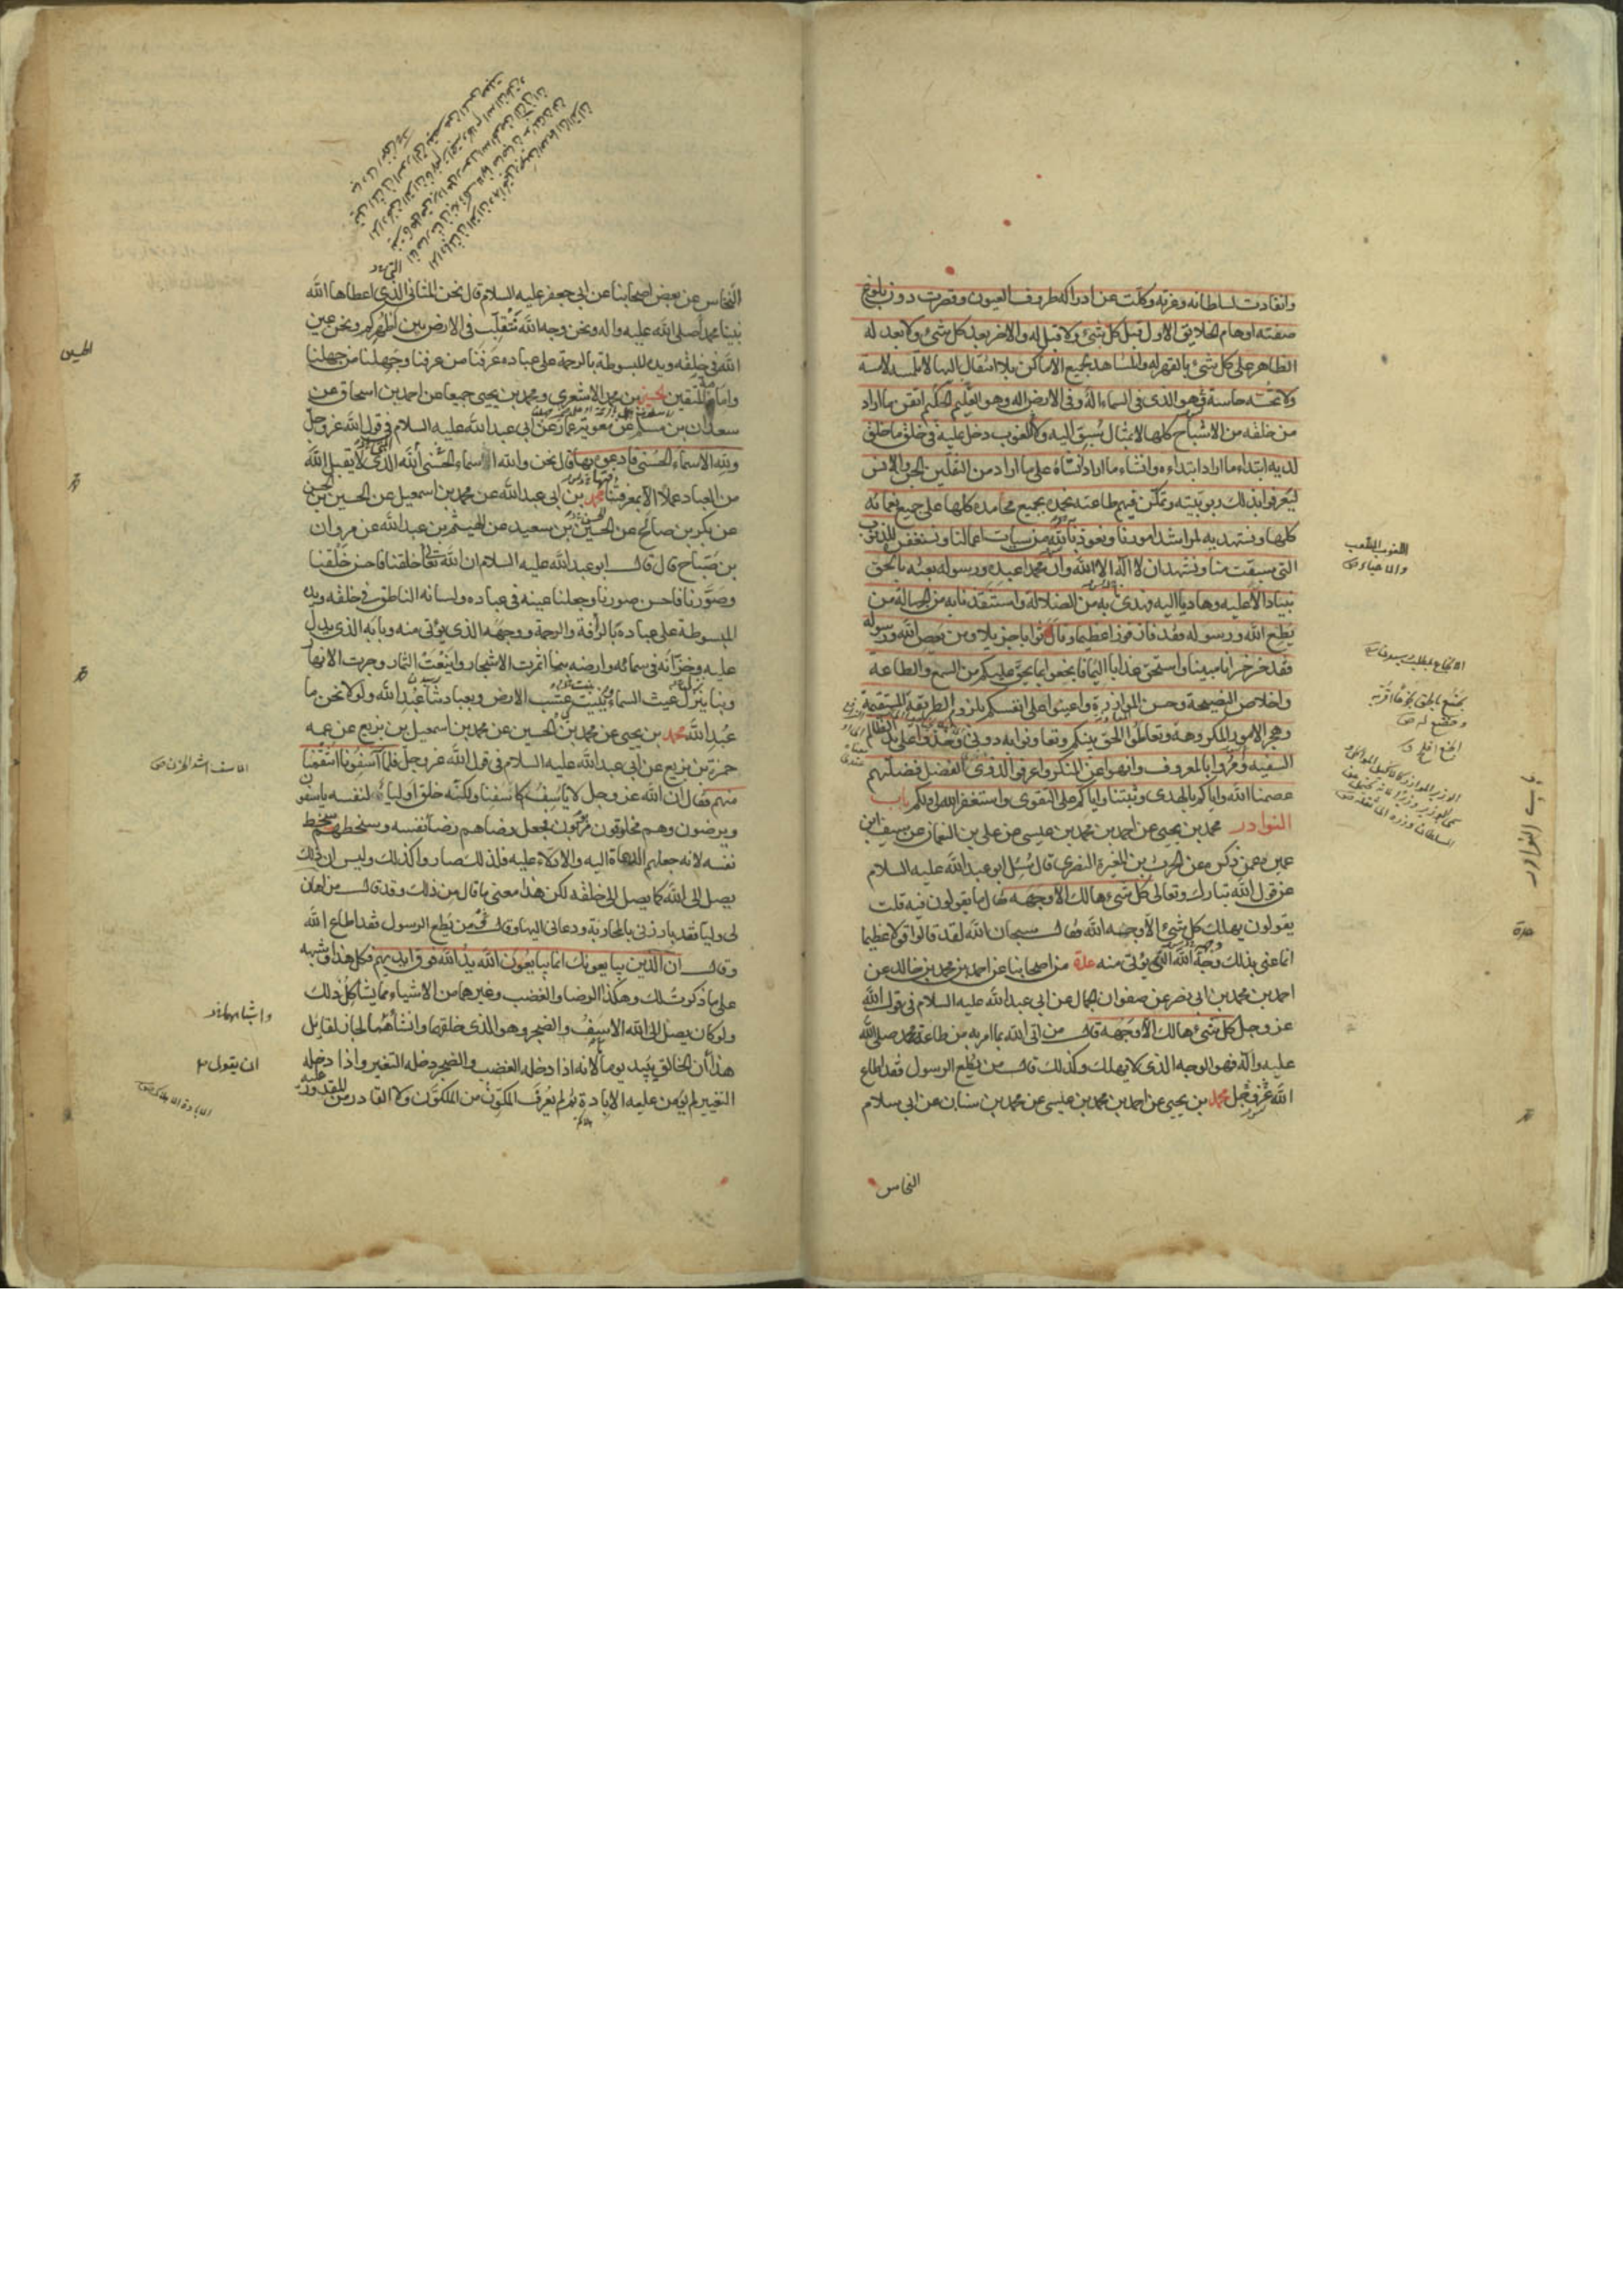 وانقادت لسلطانه وعزته وكلت عن ادراكه طروف العيون وقصرت دون بلوغ
صفته اوهام الخلايق الاول قبل كل شئ ولا قبل له والاخر بعد كل شئ ولا بعد له
الظاهر على كل شئ بالقهر له والمشاهد بجميع الاماكن بلا انتقال اليها لا تلمسه لامسة
ولا تحسه حاسة وهو الذى فى السماء اله وفى الارض اله وهو العليم الحكيم اتقن ما اراد
من خلقه من الاشباح كلها لا بمثال سبق اليه ولا لغوب دخل عليه فى خلق ما خلق
لديه ابتداء ما اراد ابتداءه وانشاء ما اراد انشاءه على ما اراد من الثقلين الجن والانس
ليعرفوا بذلك ربوبيته وتمكن فيهم طاعته نحمده بجميع محامده كلها على جميع نعمائه
كلها ونستهديه لمراشد امورنا ونعوذ بالله من سيئات اعمالنا ونستغفره للذنوب
التى سبقت منا ونشهد ان لا اله الا الله وان محمدا عبده ورسوله بعثه بالحق
نبيا دالا عليه وهاديا اليه فهدى به من الضلالة واستنقذنا به من الجهالة من
يطع الله ورسوله فقد فاز فوزا عظيما ونال ثوابا جزيلا ومن يعص الله ورسوله
فقد خسر خسرانا مبينا واستحق عذابا اليما فابخعوا بما يحق عليكم من السمع والطاعة
واخلاص النصيحة وحسن الموازرة واعينوا على انفسكم بلزوم الطريقة المستقيمة
وهجر الامور المكروهة وتعاطوا الحق بينكم وتعاونوا به دونى وخذوا على يد الظالم
السفيه ومروا بالمعروف وانهوا عن المنكر واعرفوا لذوى الفضل فضلهم
عصمنا الله واياكم بالهدى وثبتنا واياكم على التقوى واستغفر الله لى ولكم باب
النوادر محمد بن يحيى عن احمد بن محمد بن عيسى عن على بن النعمان عن سيف بن
عميرة عمن ذكره عن الحرث بن المغيرة النصرى قال سئل ابو عبد الله عليه السلام
عن قول الله تبارك وتعالى كل شئ هالك الا وجهه فقال ما يقولون فيه قلت
يقولون يهلك كل شئ الا وجه الله فقال سبحان الله لقد قالوا قولا عظيما
انما عنى بذلك وجه الله الذى يؤتى منه عدة من اصحابنا عن احمد بن محمد بن خالد عن
احمد بن محمد بن ابى نصر عن صفوان الجمال عن ابى عبد الله عليه السلام فى قول الله
عز وجل كل شئ هالك الا وجهه قال من اتى الله بما امر به من طاعة محمد صلى الله
عليه وآله فهو الوجه الذى لا يهلك وكذلك قال من يطع الرسول فقد اطاع
الله عز وجل محمد بن يحيى عن احمد بن محمد بن عيسى عن محمد بن سنان عن ابى سلام
النحاس
باب النوادر
عدة
النحاس عن بعض اصحابنا عن ابى جعفر عليه السلام قال نحن المثانى الذى اعطاها الله
نبينا محمدا صلى الله عليه واله ونحن وجه الله نتقلب فى الارض بين اظهركم ونحن عين
الله فى خلقه ويده المبسوطة بالرحمة على عباده عرفنا من عرفنا وجهلنا من جهلنا
وامامة المتقين الحسين بن محمد الاشعرى ومحمد بن يحيى جميعا عن احمد بن اسحاق عن
سعدان بن مسلم عن معوية بن عمار عن ابى عبد الله عليه السلام فى قول الله عز وجل
ولله الاسماء الحسنى فادعوه بها قال نحن والله الاسماء الحسنى الذى لا يقبل الله
من العباد عملا الا بمعرفتنا محمد بن ابى عبد الله عن محمد بن اسمعيل عن الحسين بن الحسن
عن بكر بن صالح عن الحسين بن سعيد عن الهيثم بن عبد الله عن مروان
بن صباح قال قال ابو عبد الله عليه السلام ان الله تعالى خلقنا فاحسن خلقنا
وصورنا فاحسن صورنا وجعلنا عينه فى عباده ولسانه الناطق فى خلقه ويده
المبسوطة على عباده بالرأفة والرحمة ووجهه الذى يؤتى منه وبابه الذى يدل
عليه وخزانه فى سمائه وارضه بنا اثمرت الاشجار واينعت الثمار وجرت الانهار
وبنا ينزل غيث السماء وينبت عشب الارض وبعبادتنا عبد الله ولولا نحن ما
عبد الله محمد بن يحيى عن محمد بن الحسين عن محمد بن اسمعيل بن بزيع عن عمه
حمزة بن بزيع عن ابى عبد الله عليه السلام فى قول الله عز وجل فلما آسفونا انتقمنا
منهم فقال ان الله عز وجل لا يأسف كاسفنا ولكنه خلق اولياء لنفسه ياسفون
ويرضون وهم مخلوقون مربوبون فجعل رضاهم رضا نفسه وسخطهم سخط
نفسه لانه جعلهم الدعاة اليه والادلاء عليه فلذلك صاروا كذلك وليس ان ذلك
يصل الى الله كما يصل الى خلقه لكن هذا معنى ما قال من ذلك وقد قال من اهان
لى وليا فقد بارزنى بالمحاربة ودعانى اليها وقال من يطع الرسول فقد اطاع الله
وقال ان الذين يبايعونك انما يبايعون الله يد الله فوق ايديهم فكل هذا وشبهه
على ما ذكرت لك وهكذا الرضا والغضب وغيرهما من الاشياء مما يشاكل ذلك
ولو كان يصل الى الله الاسف والضجر وهو الذى خلقهما وانشأهما لجاز لقايل
هذا ان الخالق يبيد يوما لانه اذا دخله الغضب والضجر دخله التغير واذا دخله
التغيير لم يؤمن عليه الابادة ثم لم يعرف المكون من المكون ولا القادر من المقدور عليه
الحسين
ان يقول